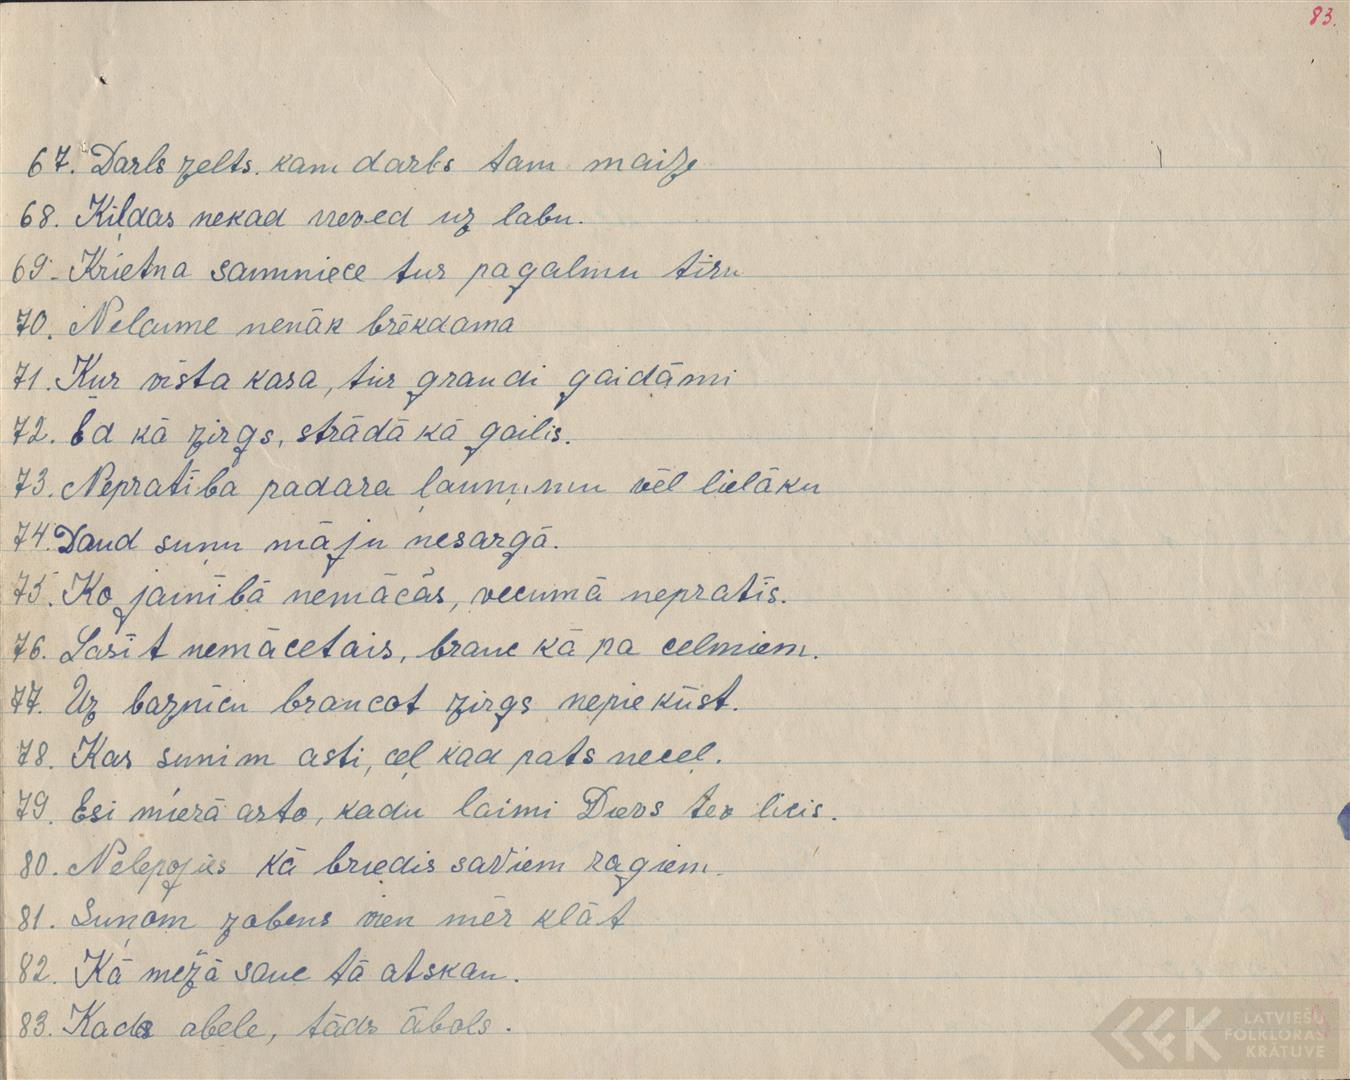 83.
67. Darbs zelts. kam darbs tam maize
68. Ķildas nekad neved uz labu.
69. Krietna saimniece tur pagalmu tīru
70. Nelaime nenāk brēkdama
71. Kur vista kasa, tur graudi gaidāmi
72. Ēd kā zirgs, strādā kā gailis.
73. Nepratība padara ļaunumu vēl lielāku
74. Daud suņu māju nesargā.
75. Ko jaunībā nemācās, vecumā nepratīs.
76. Lasīt nemācetais, brauc kā pa celmiem.
77. Uz baznicu braucot zirgs nepiekūst.
78. Kas sunim asti, ceļ kad pats neceļ.
79. Esi mierā arto, kadu laimi Dievs tev licis.
80. Nelepojies kā briedis saviem ragiem.
81. Suņam zobens vien mēr klāt
82. Kā mežā sauc tā atskan.
83. Kads abele, tāds ābols.
LATVIEŠU
FOLKLORAS
KRĀTUVE